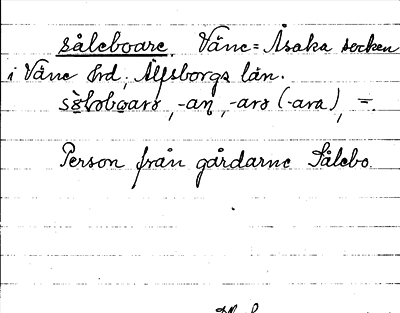 såleboare. Väne=Åsaka socken
i Väne hrd, Älfsborgs län.
sòlɘboarɘ, -aɳ, -arɘ (-ara), =.
Person från gårdarne Sålebo.